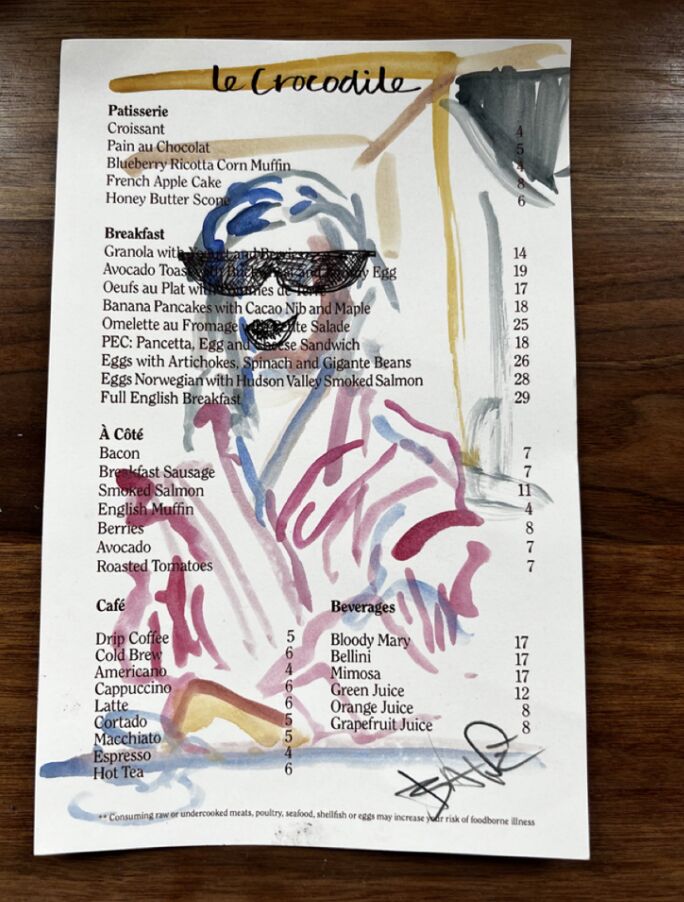 le Crocodile
Patisserie
Croissant 4
Pain au Chocolat 5
Blueberry Ricotta Corn Muffin 4
French Apple Cake 8
Honey Butter Scone 6
Breakfast
Granola with Yogurt and Berries 14
Avocado Toast with Buckwheat and Egg 19
Oeufs au Plat with de Terre 17
Banana Pancakes with Cacao Nib and Maple 18
Omelette au Fromage with Petite Salade 25
PEC: Pancetta, Egg and Cheese Sandwich 18
Eggs with Artichokes, Spinach and Gigante Beans 26
Eggs Norwegian with Hudson Valley Smoked Salmon 28
Full English Breakfast 29
À Côté
Bacon 7
Breakfast Sausage 7
Smoked Salmon 11
English Muffin 4
Berries 8
Avocado 7
Roasted Tomatoes 7
Café
Drip Coffee 5
Cold Brew 6
Americano 4
Cappuccino 6
Latte 6
Cortado 5
Macchiato 5
Espresso 4
Hot Tea 6
Beverages
Bloody Mary 17
Bellini 17
Mimosa 17
Green Juice 12
Orange Juice 8
Grapefruit Juice 8
** Consuming raw or undercooked meats, poultry, seafood, shellfish or eggs may increase your risk of foodborne illness